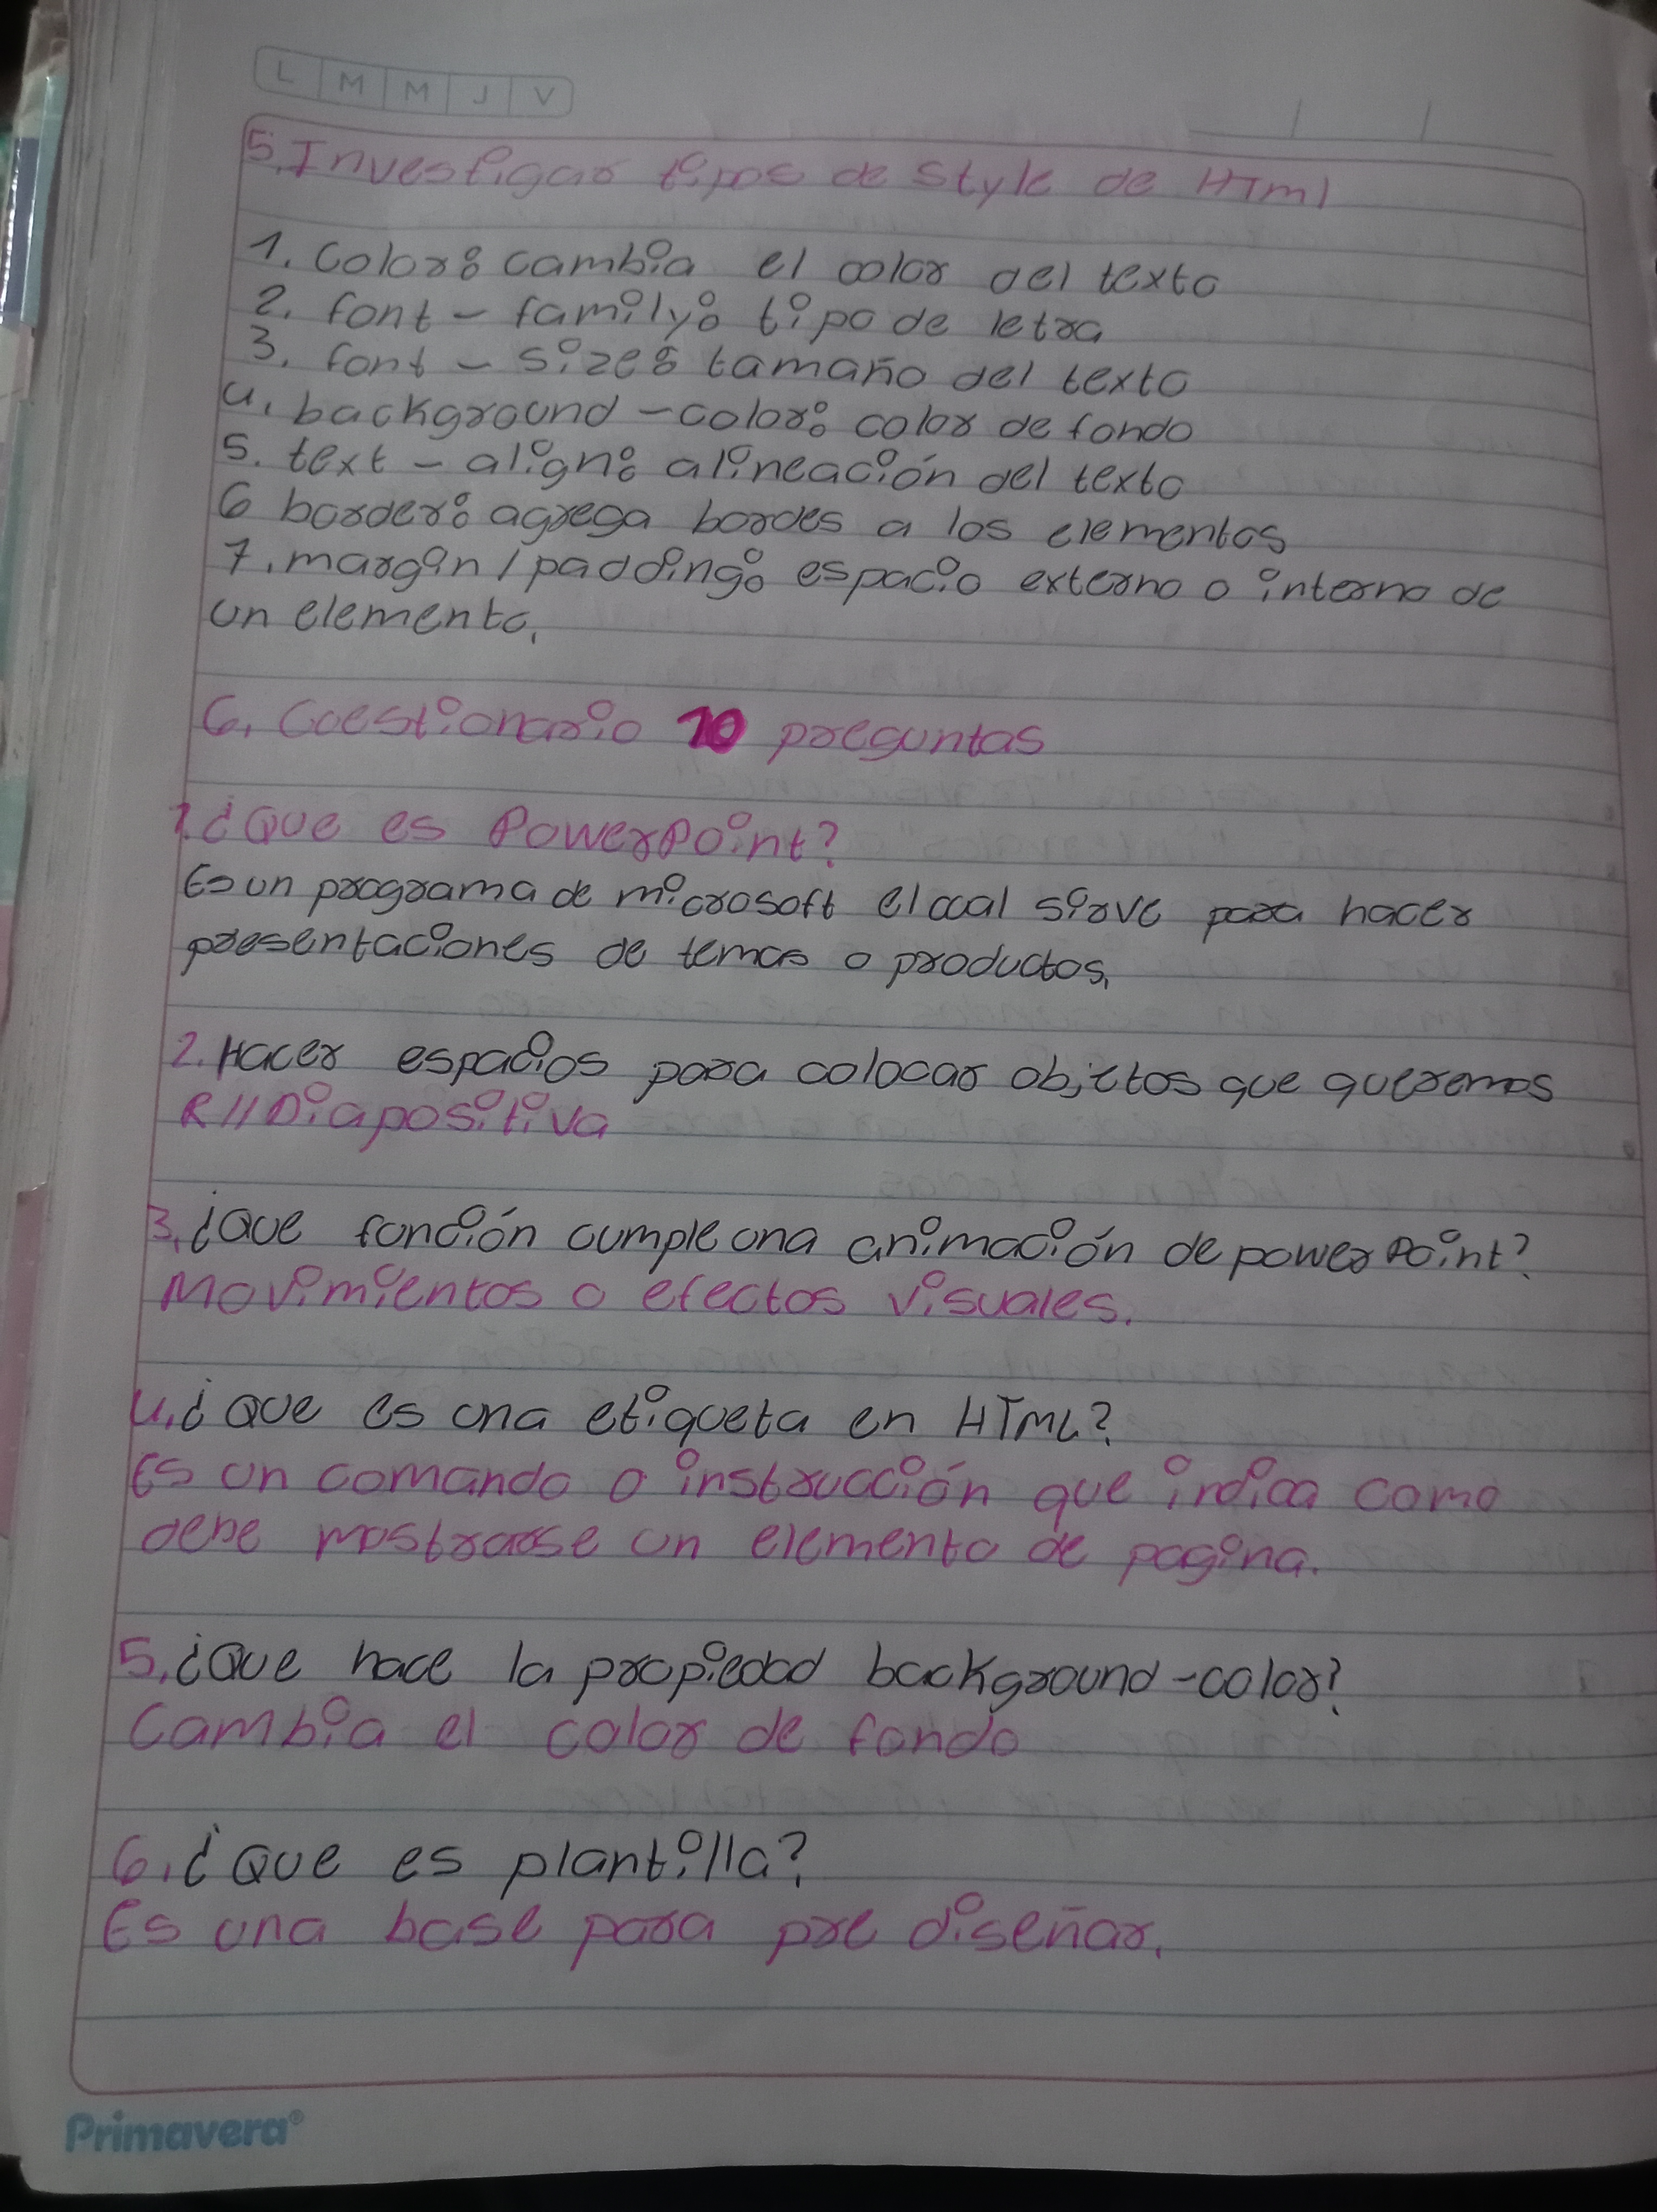 L M M J V
5. Investigar tipos de Style de HTml
1. Color: cambia el color del texto
2. font - family: tipo de letra
3. font - size: tamaño del texto
4. background - color: color de fondo
5. text - align: alineación del texto
6 border: agrega bordes a los elementos
7. margin / padding: espacio externo o interno de
un elemento.
6. Cuestionario 10 preguntas
1. ¿Que es PowerPoint?
Es un programa de microsoft el cual sirve para hacer
presentaciones de temas o productos.
2. Hacer espacios para colocar objetos que queremos
R// Diapositiva
3. ¿Que función cumple una animación de power Point?
Movimientos o efectos visuales.
4. ¿Que es una etiqueta en HTML?
Es un comando o instrucción que indica como
debe mostrarse un elemento de pagina.
5. ¿Que hace la propiedad background-color?
Cambia el color de fondo
6. ¿Que es plantilla?
Es una base para pre diseñar.
Primavera®